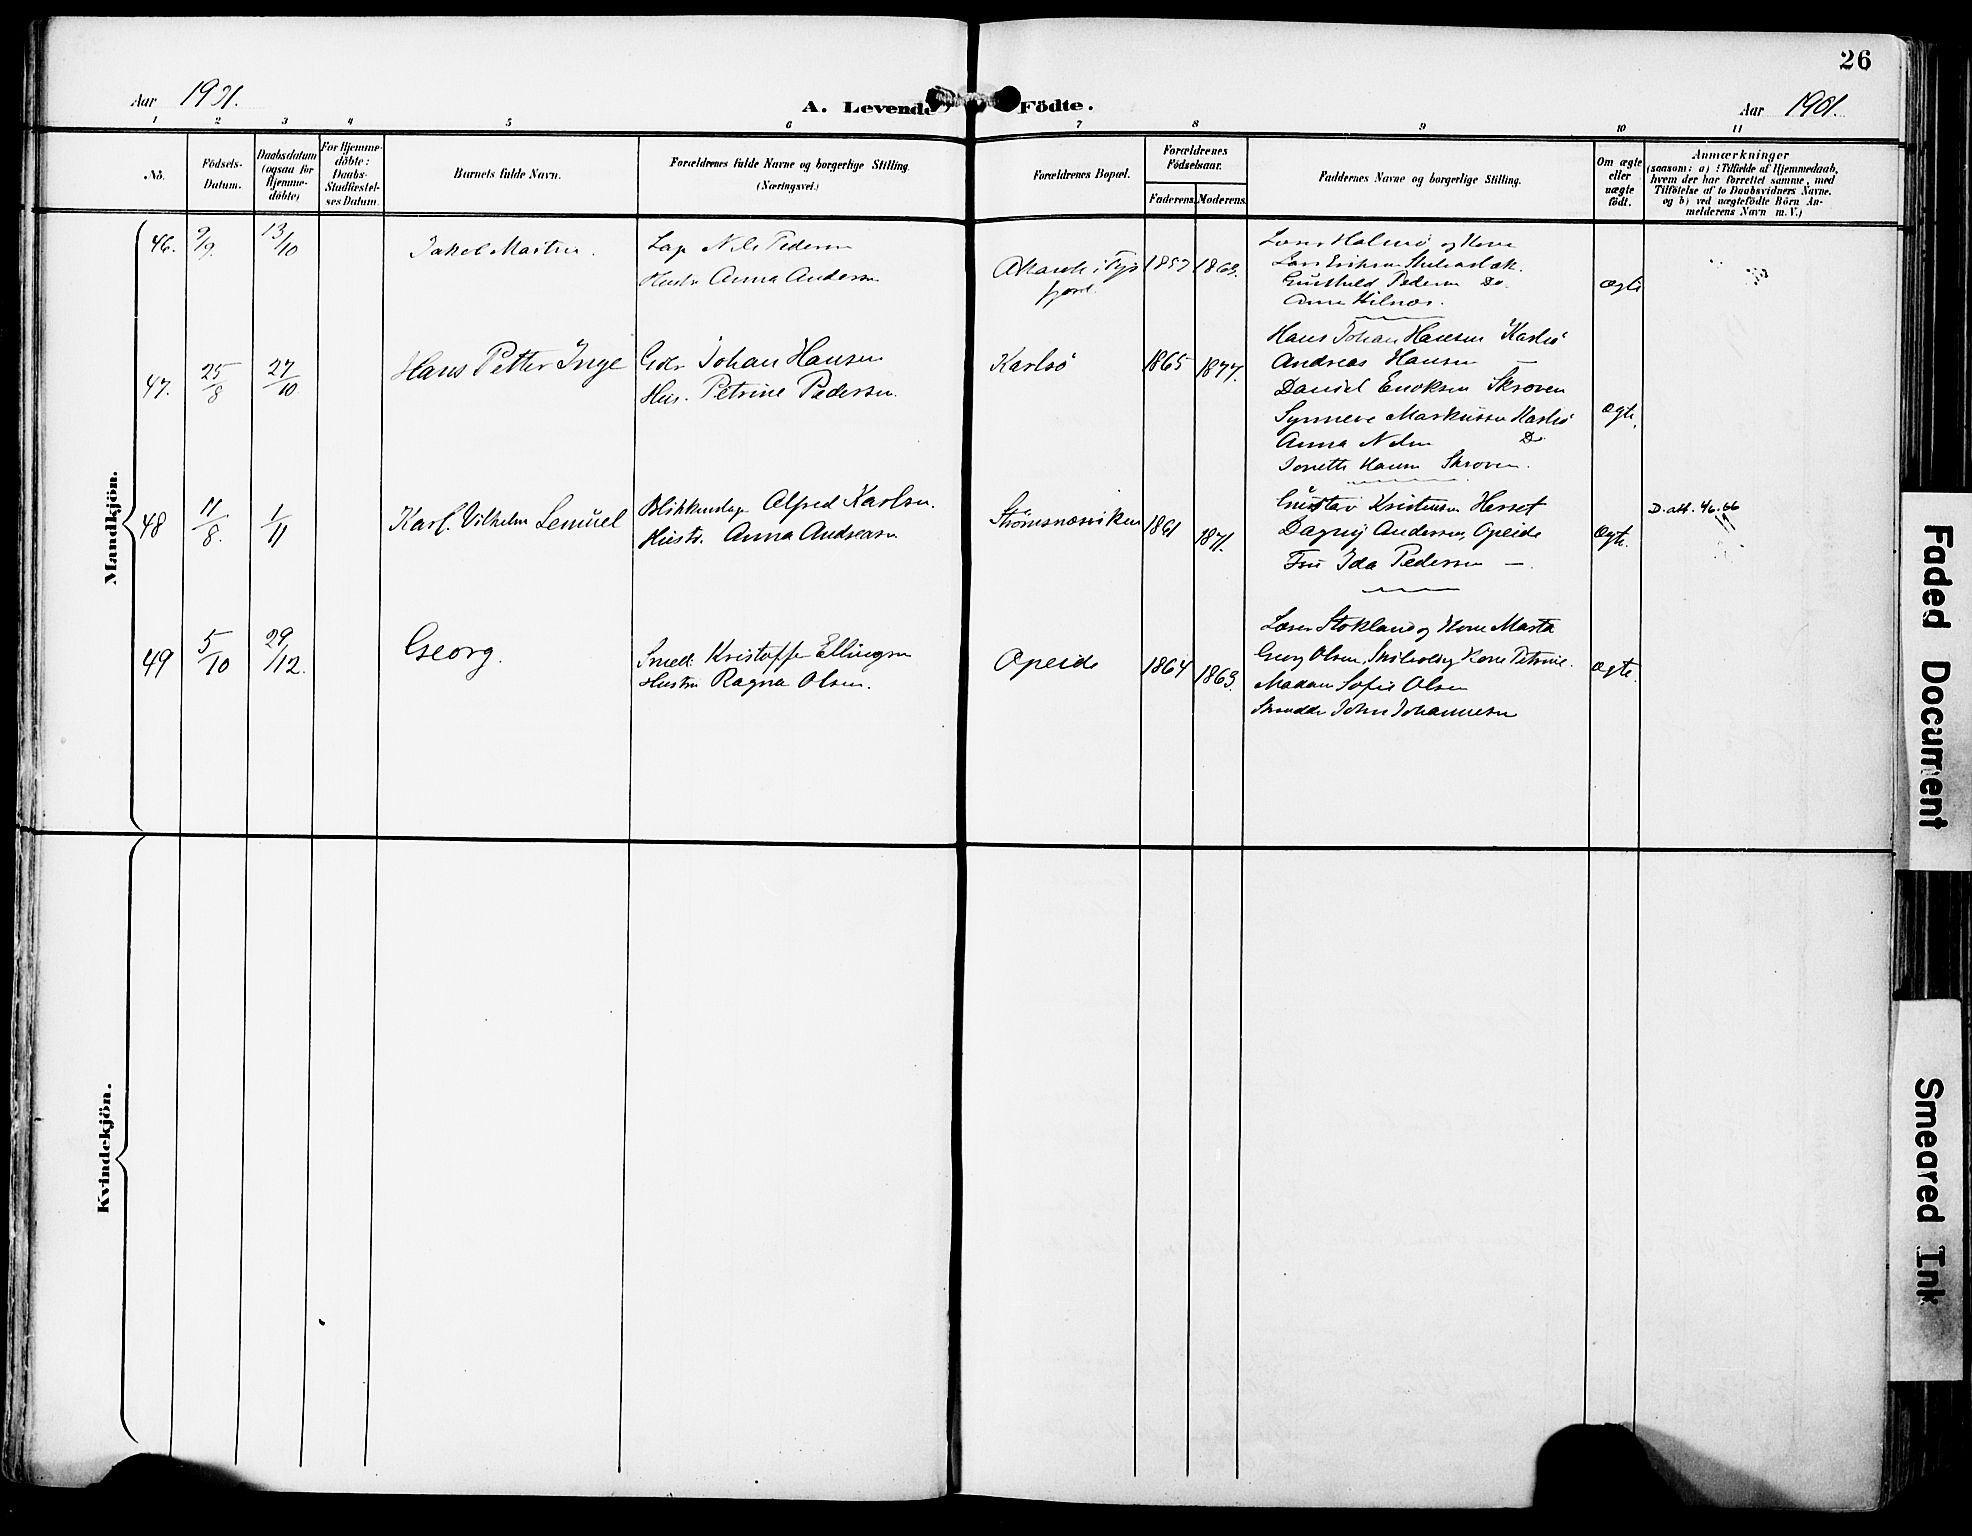 26
Aar 1901.
A. Levende Födte.
Aar 1901.
1 2 3 4 5 6 7 8 9 10 11
No.
Födsels-
Datum.
Daabsdatum
(ogsaa for
Hjemme-
döbte)
For Hjemme-
döbte:
Daabs-
Stadfæstel-
ses Datum.
Barnets fulde Navn.
Forældrenes fulde Navne og borgerlige Stilling.
(Næringsvei.)
Forældrenes Bopæl.
Forældrenes
Födselsaar.
Faderens. Moderens.
Faddernes Navne og borgerlige Stilling.
Om ægte
eller
uægte
födt.
Anmærkninger
(saasom: a) i Tilfælde af Hjemmedaab,
hvem der har forrettet samme, med
Tilföielse af to Daabsvidners Navne.
og b) ved uægtefödte Börn An-
melderens Navn m. V.)
Mandkjön.
46. 9/9. 13/10
Jakob Martin.
Lap Nils Pedersen
Hustr Anna Andersen
i Tys
fjord.
1857 1863.
og Kone
Lars Eriksen
Gunhild Pedersen Do.
Anna
Ægte
47. 25/8 27/10
Hans Petter Inge
Gdr Johan Hansen
Hus. Petrine Pedersen.
Karlsö
1865 1877.
Hans Johan Hansen Karlsö
Andreas Hansen —
Daniel Enoksen Skroven
Synneve Markussen Karlsö
Anna Nilsen Do
Jonette Hansen Skroven.
Ægte.
48 11/8. 1/11
Karl. Vilhelm Lemuel
Blikkenslag Alfred Karlsen.
Hustr. Anna Andreasen
Strømsnesviken
1861 1871.
Gustav Kristensen Hesset
Dagny Andersen, Opeide
Fru Ida Pedersen —.
Ægte.
D. att. 46.66
49 5/10 29/12.
Georg.
Smed Kristoffer Ellingsen
Hustru Ragna Olsen.
Opeide
1864 1863.
Lærer Stokland og Kone Marta
Georg Olsen, og Kone Petrine.
Madam Sofie Olsen
Skrædder John Johannesen
Ægte.
Kvindekjön.
Faded Document
Smeared Ink